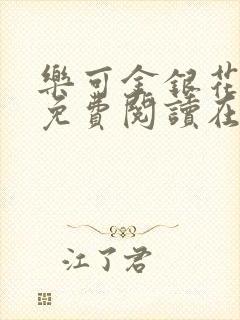 樂可金銀花
免費閱讀在
江了君